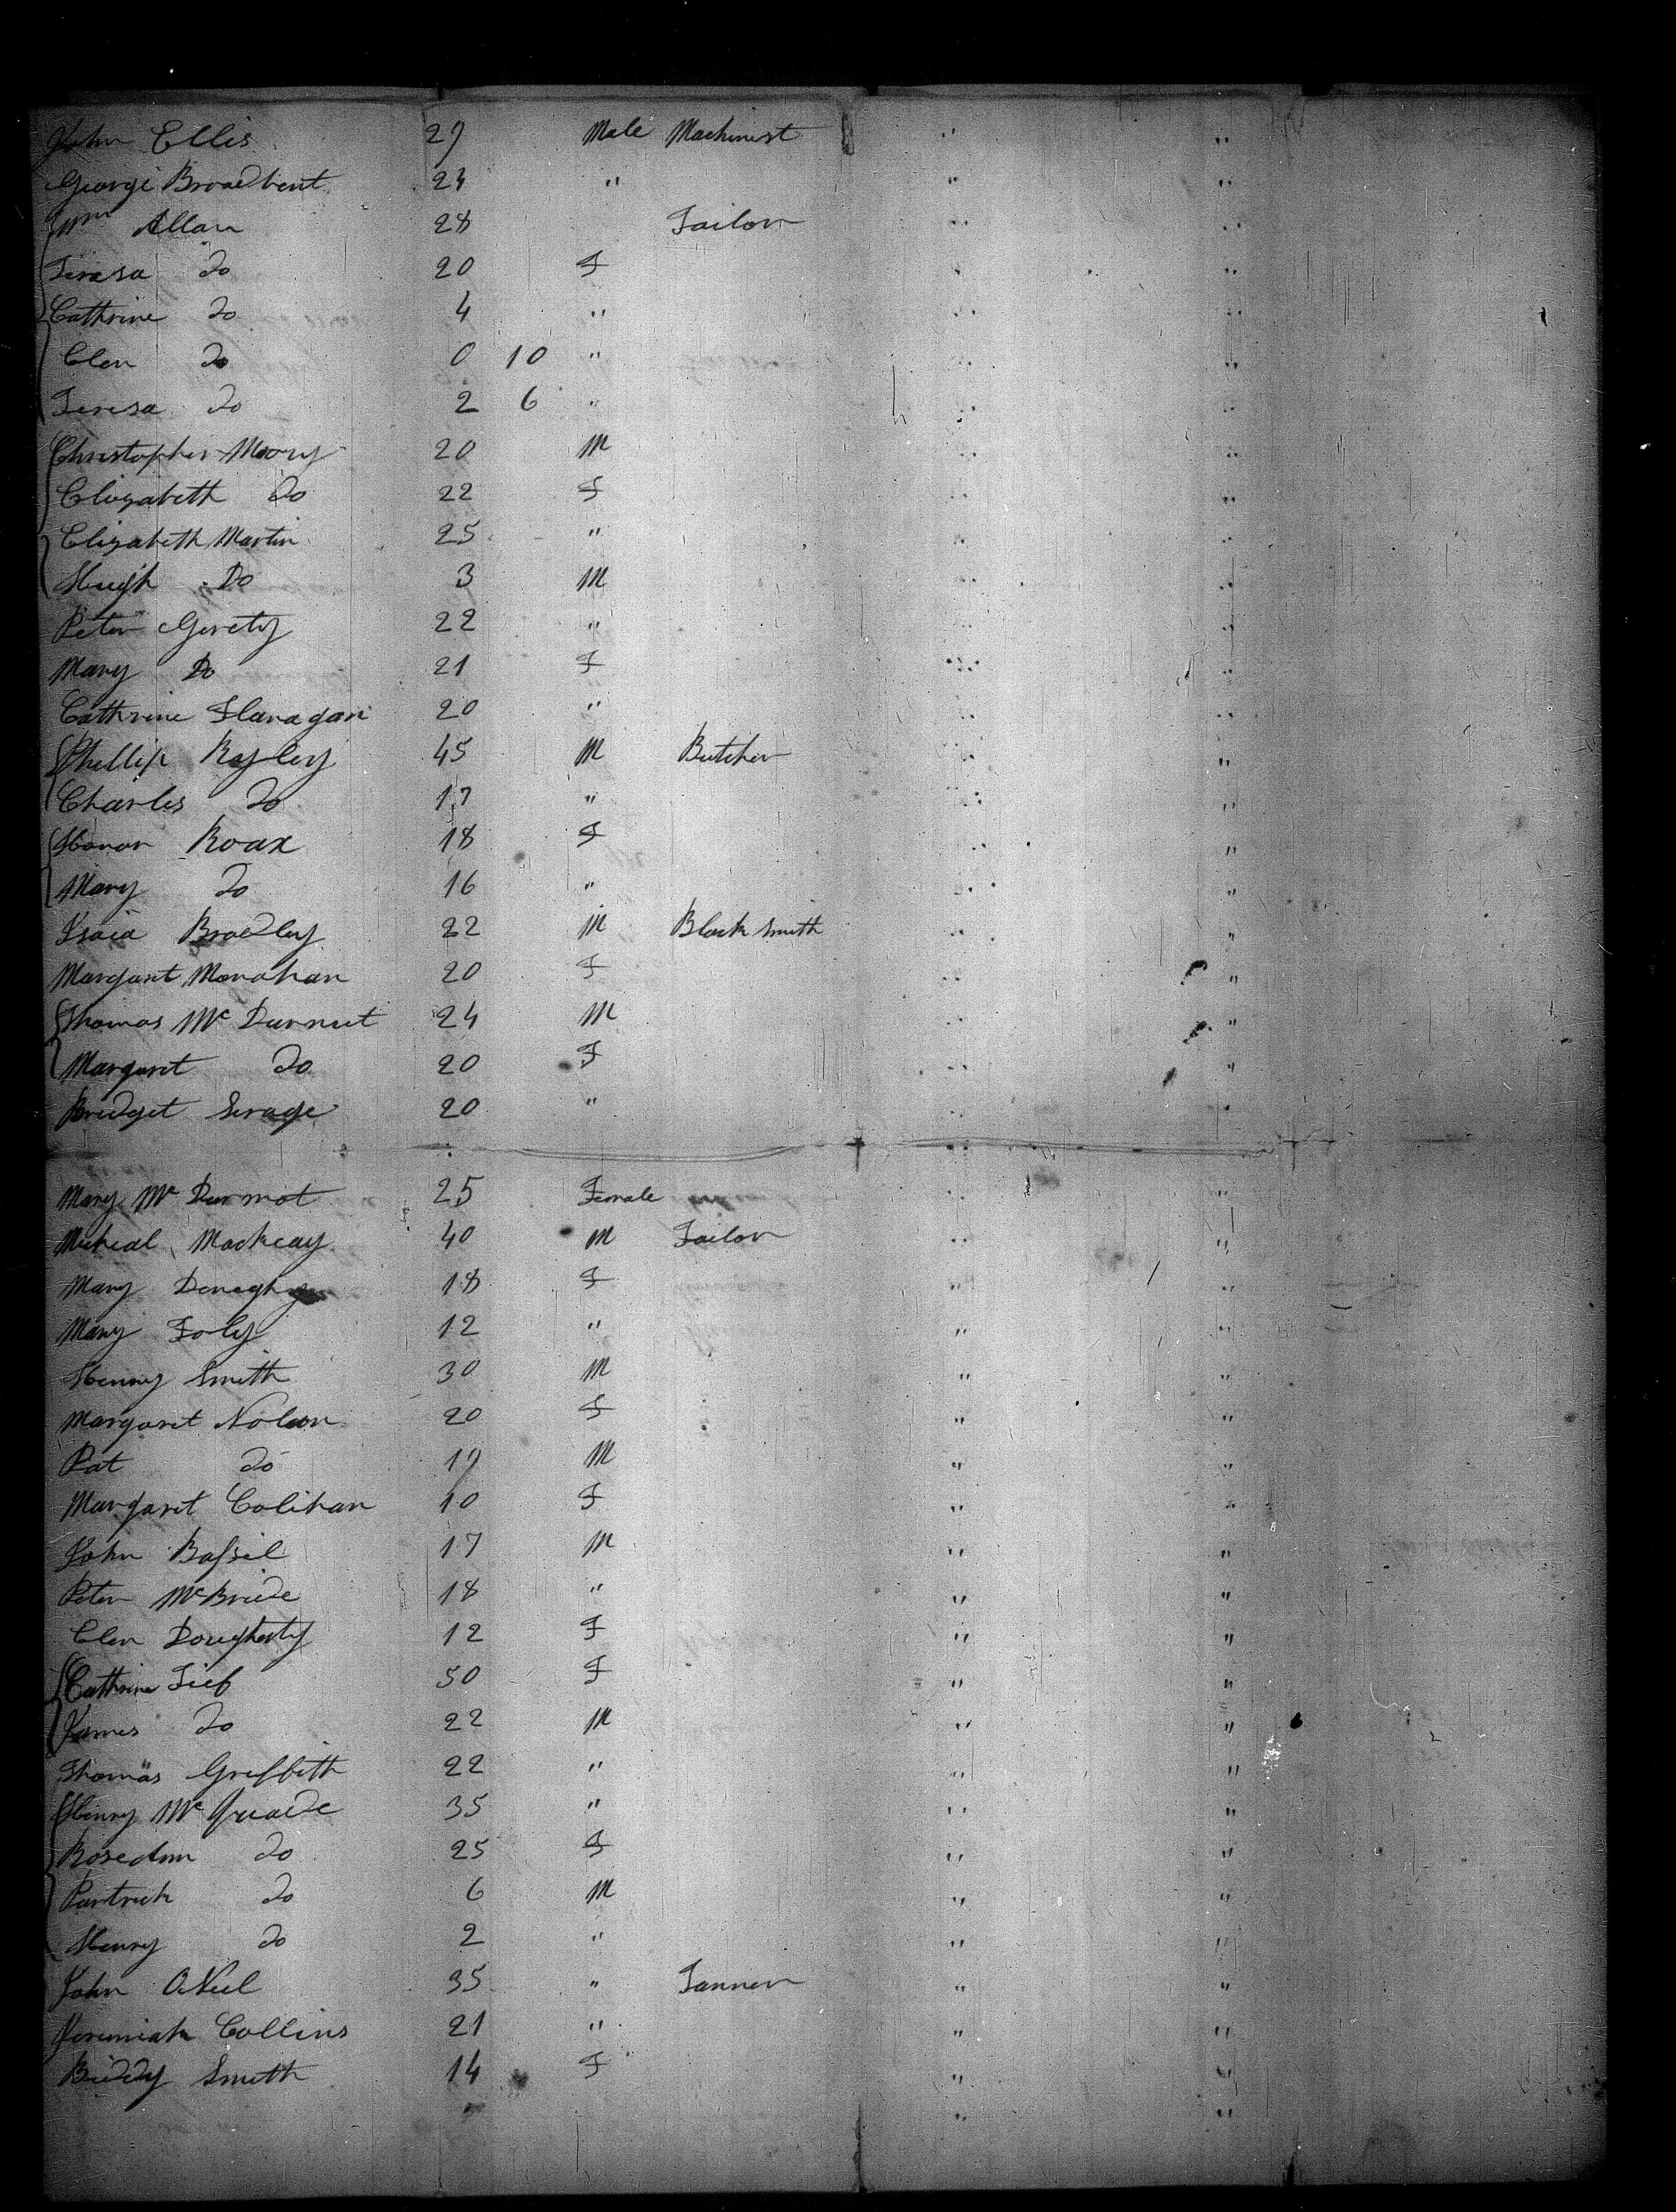 John Ellis 27 Male Machinest " "
George Broadbent 24 " " "
Wm Allan 28 Tailor " "
Teresa do 20 F " "
Cathrine do 4 " " "
Elen do 0 10 " "
Teresa do 2 6 " " "
Christopher Moory 20 M " "
Elizabeth do 22 F " "
Elizabeth Martin 25 " " "
Hugh Do 3 M " "
Peter Gerety 22 " " "
Mary Do 21 F " "
Cathrine Flanagan 20 " " "
Phillip Ryley 45 M Butcher " "
Charles do 17 " " "
Honor Roax 18 F " "
Mary do 16 " " "
Isaia Bradley 22 M Black Smith " "
Margaret Monahan 20 F " "
Thomas Mc Durmut 24 M " "
Margaret do 20 F " "
Bridget 20 " " "
Mary Mc Durmot 25 Female " "
Micheal Mackeay 40 M Tailor " "
Mary Doneghy 18 F " "
Mary Foly 12 " " "
Henry Smith 30 M " "
Margaret Nolan 20 F " "
Pat do 17 M " "
Margaret Colihan 10 F " "
John Bassil 17 M " "
Peter McBride 18 " " "
Elen Dougherty 12 F " "
Cathrine 50 F " "
James do 22 M " "
Thomas Griffith 22 " " "
Henry Mc Quade 35 " " "
RoseAnn do 25 F " "
Partrick do 6 M " "
Henry do 2 " " "
John ONeil 35 " Tanner " "
Jeremiah Collins 21 " " "
Biddy Smith 14 F " "
" "